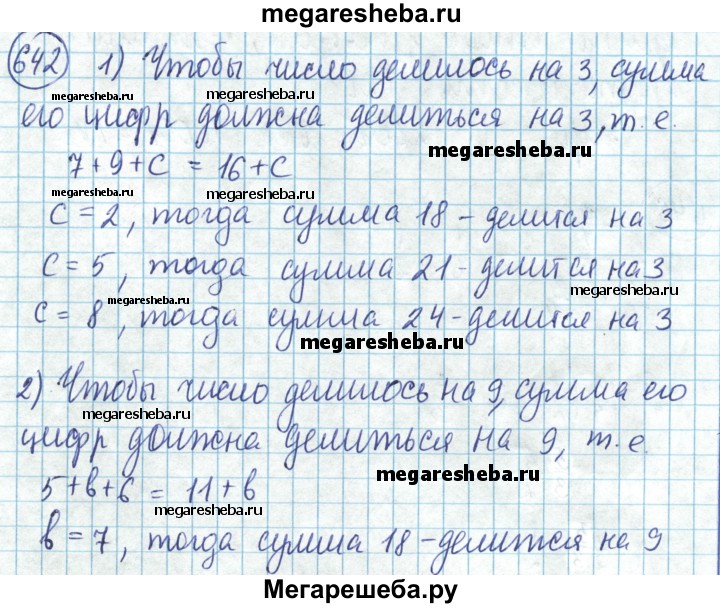 megaresheba.ru
642 1) Чтобы число делилось на 3, сумма
megaresheba.ru megaresheba.ru
его цифр должна делиться на 3, т.е.
megaresheba.ru
7+9+с = 16+с
megaresheba.ru megaresheba.ru
с=2, тогда сумма 18 - делится на 3
с=5, тогда сумма 21 - делится на 3
megaresheba.ru megaresheba.ru
с=8, тогда сумма 24 - делится на 3
megaresheba.ru
2) Чтобы число делилось на 9, сумма его
megaresheba.ru
цифр должна делиться на 9, т.е.
megaresheba.ru
5+в+6 = 11+в
megaresheba.ru
в=7, тогда сумма 18 - делится на 9
Мегарешеба.ру